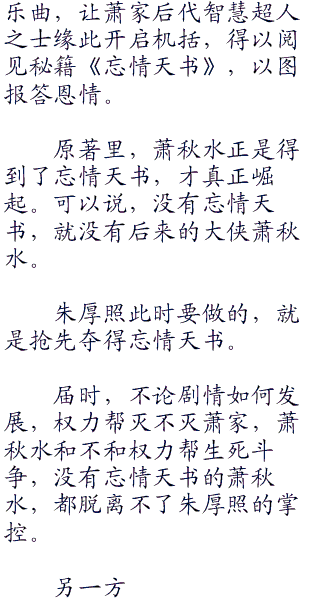 乐曲，让萧家后代智慧超人
之士缘此开启机括，得以阅
见秘籍《忘情天书》，以图
报答恩情。
原著里，萧秋水正是得
到了忘情天书，才真正崛
起。可以说，没有忘情天
书，就没有后来的大侠萧秋
水。
朱厚照此时要做的，就
是抢先夺得忘情天书。
届时，不论剧情如何发
展，权力帮灭不灭萧家，萧
秋水和不和权力帮生死斗
争，没有忘情天书的萧秋
水，都脱离不了朱厚照的掌
控。
另一方